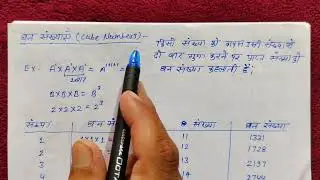 घन संख्याएँ (Cube Numbers):-
किसी संख्या को
दो बार गुणा करने पर प्राप्त संख्या
घन संख्या कहलाती हैं।
Ex- A×A×A = A¹⁺¹⁺¹ =
2बार
B×B×B = B³
2×2×2 = 2³
संख्या घन संख्या संख्या घन संख्या
1 1×1×1 11 1331
2 12 1728
3 13 2197
4 14 2744